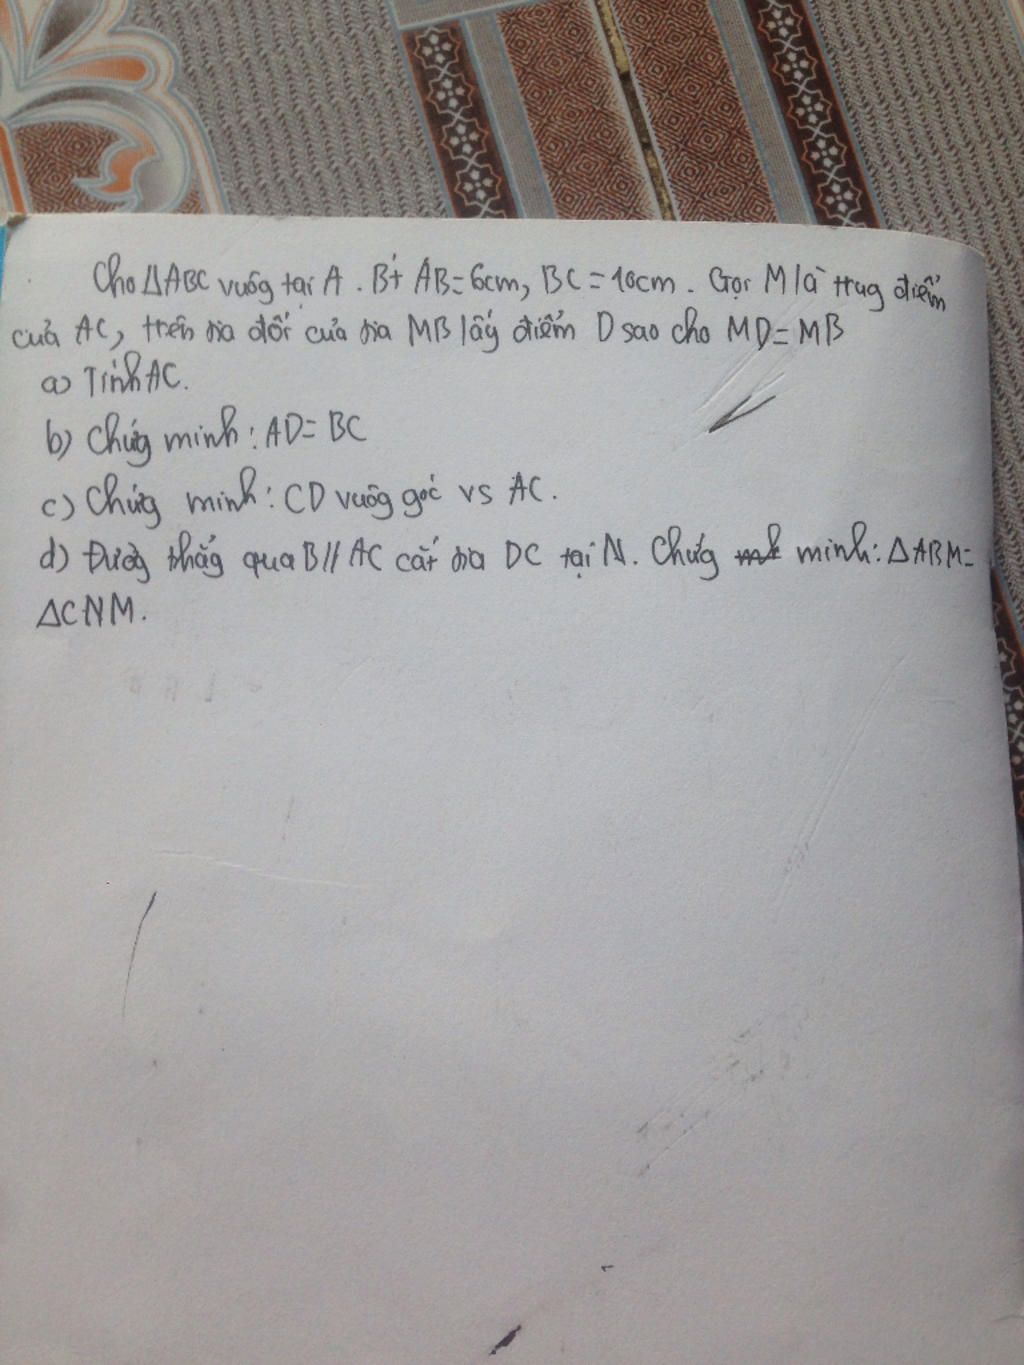 Cho ΔABC vuôg tại A. Bít AB=6cm, BC=10cm. Gọi M là trug điểm
của AC, trên tia đối của tia MB lấy điểm D sao cho MD=MB
a) Tính AC.
b) Chứg minh: AD=BC
c) Chứg minh: CD vuôg góc vs AC.
d) Đườg thẳg qua B // AC cắt tia DC tại N. Chứg minh: ΔABM=
ΔCNM.